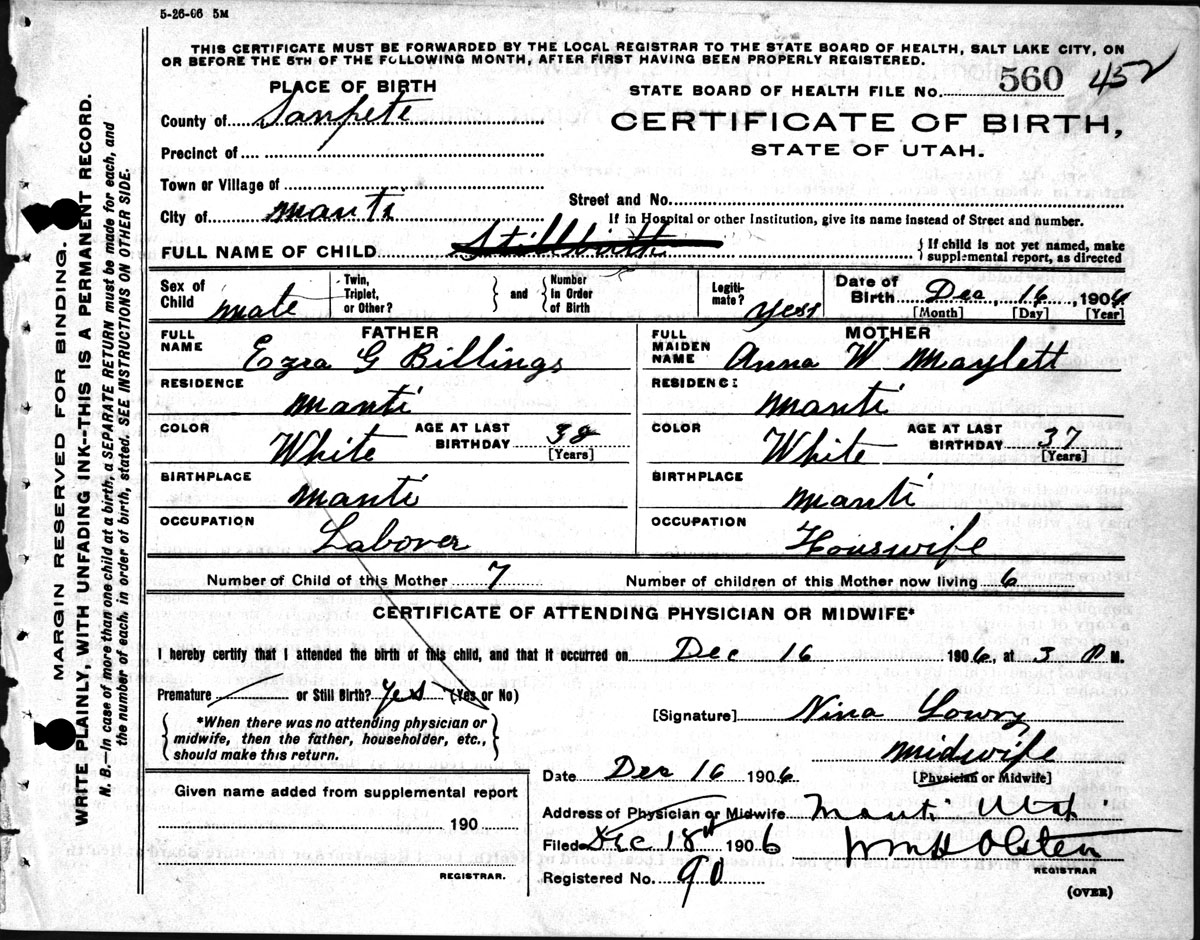 5-26-06 5M
THIS CERTIFICATE MUST BE FORWARDED BY THE LOCAL REGISTRAR TO THE STATE BOARD OF HEALTH, SALT LAKE CITY, ON
OR BEFORE THE 5TH OF THE FOLLOWING MONTH, AFTER FIRST HAVING BEEN PROPERLY REGISTERED.
PLACE OF BIRTH
STATE BOARD OF HEALTH FILE No. 560 452
County of Sanpete
CERTIFICATE OF BIRTH,
STATE OF UTAH.
Precinct of
Town or Village of
Street and No.
City of Manti
If in Hospital or other Institution, give its name instead of Street and number.
FULL NAME OF CHILD Stillbirth
{ If child is not yet named, make
supplemental report, as directed
Sex of Child Male
Twin, Triplet, or Other? } and { Number In Order of Birth
Legitimate? Yess
Date of Birth Dec 16, 1906
[Month] [Day] [Year]
FATHER
FULL NAME Ezra G Billings
RESIDENCE Manti
COLOR White AGE AT LAST BIRTHDAY 38 [Years]
BIRTHPLACE Manti
OCCUPATION Laborer
MOTHER
FULL MAIDEN NAME Anna W Maylett
RESIDENCE Manti
COLOR White AGE AT LAST BIRTHDAY 37 [Years]
BIRTHPLACE Manti
OCCUPATION Houswife
Number of Child of this Mother 7 Number of children of this Mother now living 6
CERTIFICATE OF ATTENDING PHYSICIAN OR MIDWIFE*
I hereby certify that I attended the birth of this child, and that it occurred on Dec 16 1906, at 3 P M.
Premature or Still Birth? Yes (Yes or No)
*When there was no attending physician or
midwife, then the father, householder, etc.,
should make this return.
[Signature] Nina Lowry
Midwife
[Physician or Midwife]
Date Dec 16 1906
Given name added from supplemental report
190
REGISTRAR.
Address of Physician or Midwife Manti Utah
Filed Dec 18th 1906 Wm H Olsten
REGISTRAR
Registered No. 90
(OVER)
MARGIN RESERVED FOR BINDING.
WRITE PLAINLY, WITH UNFADING INK--THIS IS A PERMANENT RECORD.
N. B.—In case of more than one child at a birth, a SEPARATE RETURN must be made for each, and
the number of each, in order of birth, stated. SEE INSTRUCTIONS ON OTHER SIDE.